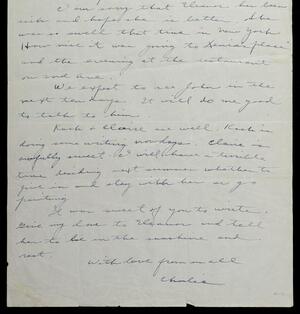 I am sorry that Eleanor has been
sick and hope she is better. She
was so swell that time in New York.
How nice it was going to place
and the evening at the restaurant
on 2nd Ave.
We expect to see John in the
next ten days. It will do me good
to talk to him.
& Claire are well. is
doing some writing nowadays. Claire is
awfully sweet. I will have a terrible
time next summer whether to
give in and stay with her or go
painting.
It was sweet of you to write.
Give my love to Eleanor and tell
her to be in the sunshine and
rest.
With love from us all
Charlie